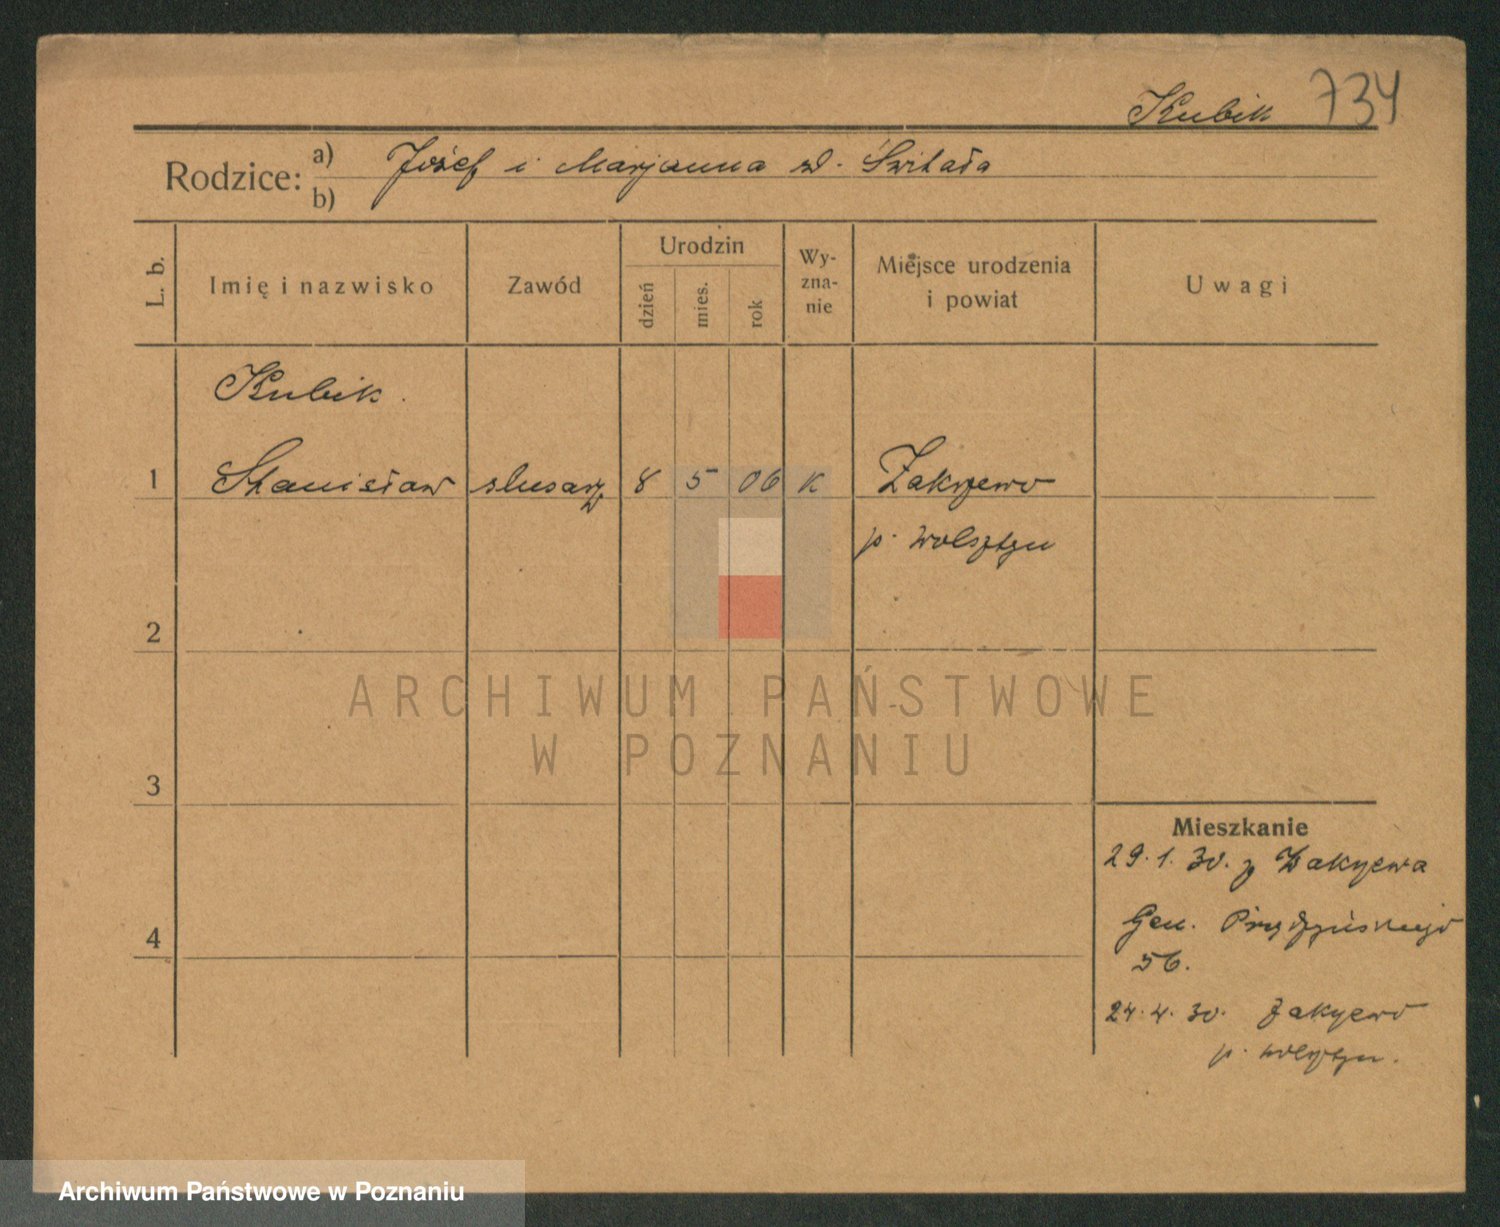 Kubik 734
Rodzice: a) Józef i Marjanna zd. Świtała
b)
L. b. Imię i nazwisko Zawód Urodzin dzień mies. rok Wy-zna-nie Miejsce urodzenia i powiat Uwagi
Kubik.
1 Stanisław slusarz 8 5 06 K Zakrzewo
p. Wolsztyn
2
ARCHIWUM PAŃSTWOWE
W POZNANIU
3
Mieszkanie
29. 1. 30. z Zakrzewa
4 Gen. Prądzyńskiego
56.
24. 4. 30. Zakrzewo
p. Wolsztyn.
Archiwum Państwowe w Poznaniu